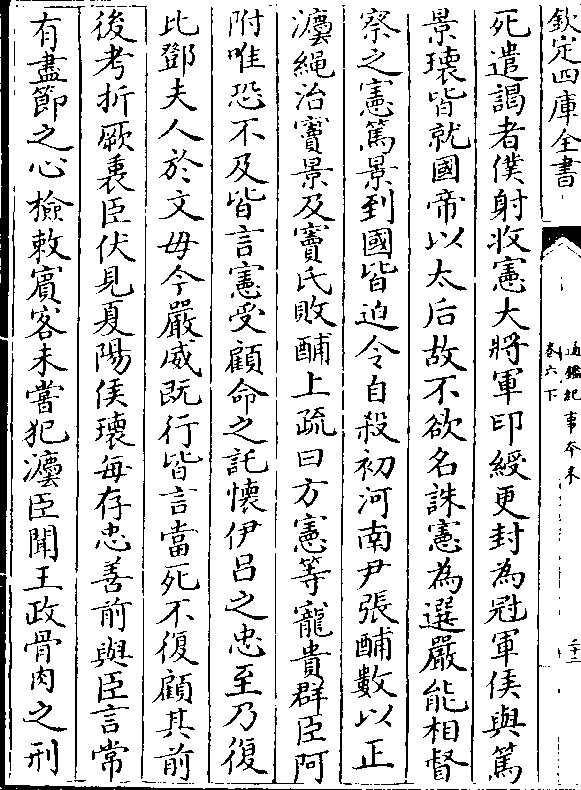 欽定四庫全書
通鑑紀事本末
卷六下
二十二
死遣謁者僕射收憲大將軍印綬更封為冠軍侯與篤
景瓌皆就國帝以太后故不欲名誅憲為選嚴能相督
察之憲篤景到國皆迫令自殺初河南尹張酺數以正
灋繩治竇景及竇氏敗酺上疏曰方憲等寵貴群臣阿
附唯恐不及皆言憲受顧命之託懷伊吕之忠至乃復
比鄧夫人於文毋今嚴威既行皆言當死不復顧其前
後考折厥衷臣伏見夏陽侯瓌每存忠善前與臣言常
有盡節之心檢敕賓客未嘗犯灋臣聞王政骨肉之刑